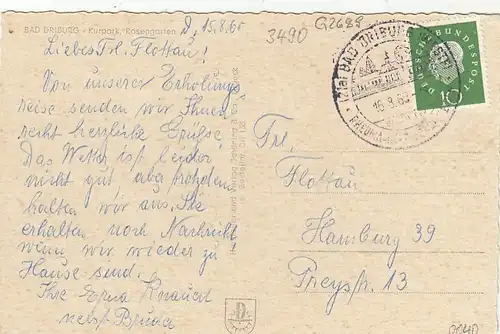 BAD DRIBURG - Kurpark, Rosengarten
D, 15.8.60
Liebes Frl. Flottau!
Von unserer Erholungs
reise senden wir Ihnen
recht herzliche Grüße.
Das Wetter ist leider
nicht gut aber trotzdem
halten wir aus. Sie
erhalten noch Nachricht
wenn wir wieder zu
Hause send.
Ihre Erna Knauert
nebst Bruder
3490
G2689
BAD DRIBURG
16.8.60
DEUTSCHE BUNDESPOST
10
Frl.
Flottau
Hamburg 39
Preystr. 13